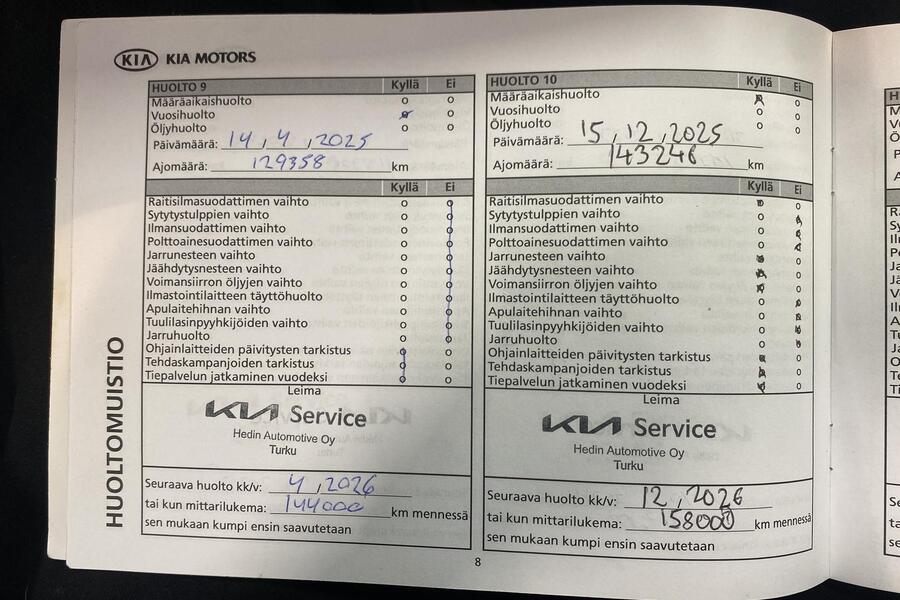 KIA KIA MOTORS
HUOLTO 9 Kyllä Ei
Määräaikaishuolto
Vuosihuolto
Öljyhuolto
Päivämäärä: 14, 4, 2025
Ajomäärä: 129358 km
Kyllä Ei
Raitisilmasuodattimen vaihto
Sytytystulppien vaihto
Ilmansuodattimen vaihto
Polttoainesuodattimen vaihto
Jarrunesteen vaihto
Jäähdytysnesteen vaihto
Voimansiirron öljyjen vaihto
Ilmastointilaitteen täyttöhuolto
Apulaitehihnan vaihto
Tuulilasinpyyhkijöiden vaihto
Jarruhuolto
Ohjainlaitteiden päivitysten tarkistus
Tehdaskampanjoiden tarkistus
Tiepalvelun jatkaminen vuodeksi
Leima
KIA Service
Hedin Automotive Oy
Turku
Seuraava huolto kk/v: 4, 2026
tai kun mittarilukema: 144000 km mennessä
sen mukaan kumpi ensin saavutetaan
HUOLTO 10 Kyllä Ei
Määräaikaishuolto
Vuosihuolto
Öljyhuolto
Päivämäärä: 15, 12, 2025
Ajomäärä: 143246 km
Kyllä Ei
Raitisilmasuodattimen vaihto
Sytytystulppien vaihto
Ilmansuodattimen vaihto
Polttoainesuodattimen vaihto
Jarrunesteen vaihto
Jäähdytysnesteen vaihto
Voimansiirron öljyjen vaihto
Ilmastointilaitteen täyttöhuolto
Apulaitehihnan vaihto
Tuulilasinpyyhkijöiden vaihto
Jarruhuolto
Ohjainlaitteiden päivitysten tarkistus
Tehdaskampanjoiden tarkistus
Tiepalvelun jatkaminen vuodeksi
Leima
KIA Service
Hedin Automotive Oy
Turku
Seuraava huolto kk/v: 12, 2026
tai kun mittarilukema: 158000 km mennessä
sen mukaan kumpi ensin saavutetaan
HUOLTOMUISTIO
8